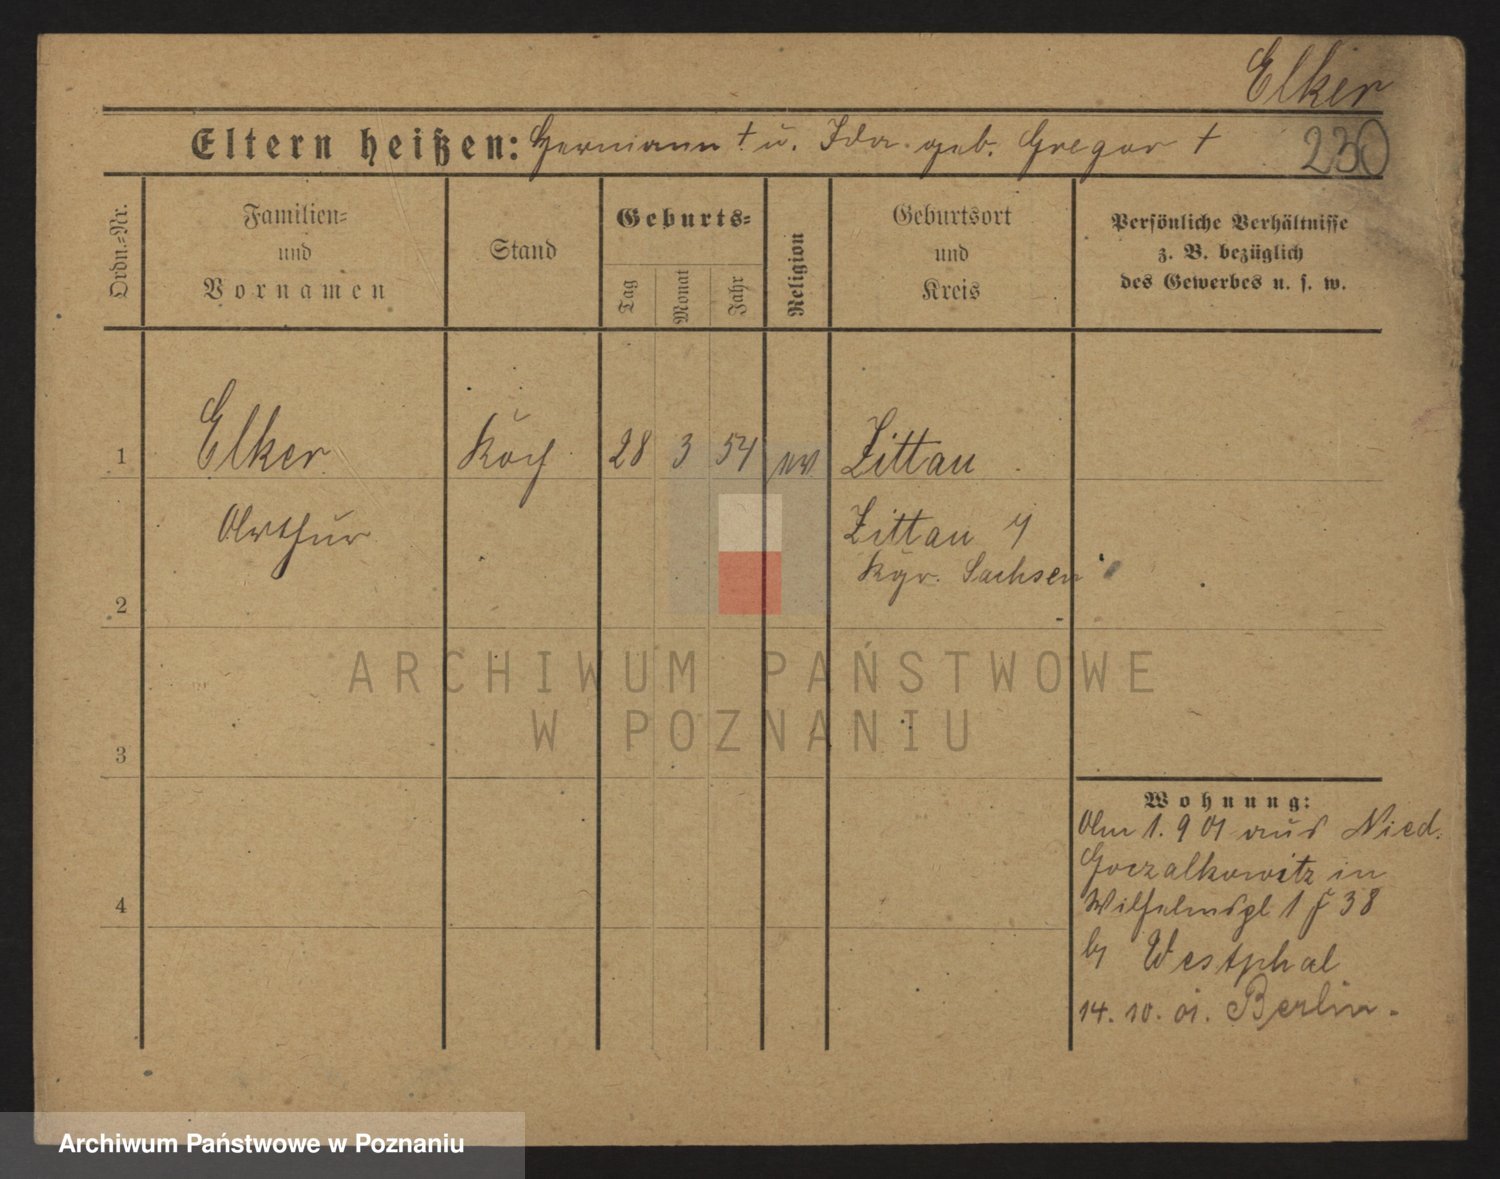 Elker
Eltern heißen: Hermann † u. Ida geb. Gregor †
230
Ordn.-Nr.
Familien-
und
Vornamen
Stand
Geburts-
Tag
Monat
Jahr
Religion
Geburtsort
und
Kreis
Persönliche Verhältnisse
z. B. bezüglich
des Gewerbes u. s. w.
1
Elker
Koch
28
3
54
ev
Zittau
Arthur
Zittau
Kgr. Sachsen
2
ARCHIWUM PAŃSTWOWE
W POZNANIU
3
4
Wohnung:
Am 1. 9 01 aus Nied.
Goczalkowitz in
Wilhelmspl 1 38
by Westphal
14. 10. 01. Berlin.
Archiwum Państwowe w Poznaniu